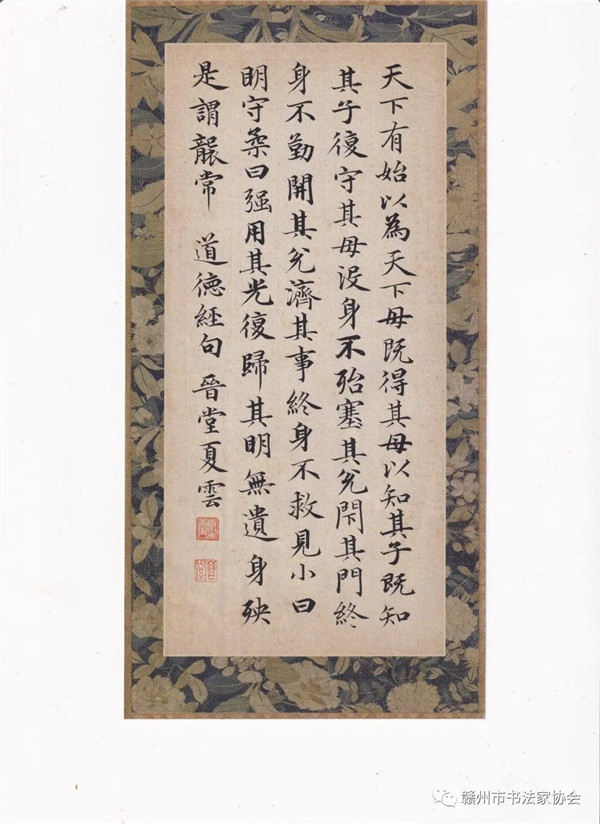 天下有始以為天下母既得其母以知其子既知
其子復守其母没身不殆塞其兑閇其門終
身不勤開其兑濟其事終身不救見小曰
明守柔曰强用其光復歸其明無遺身殃
是謂襲常 道德經句 晉堂夏雲
赣州市书法家协会